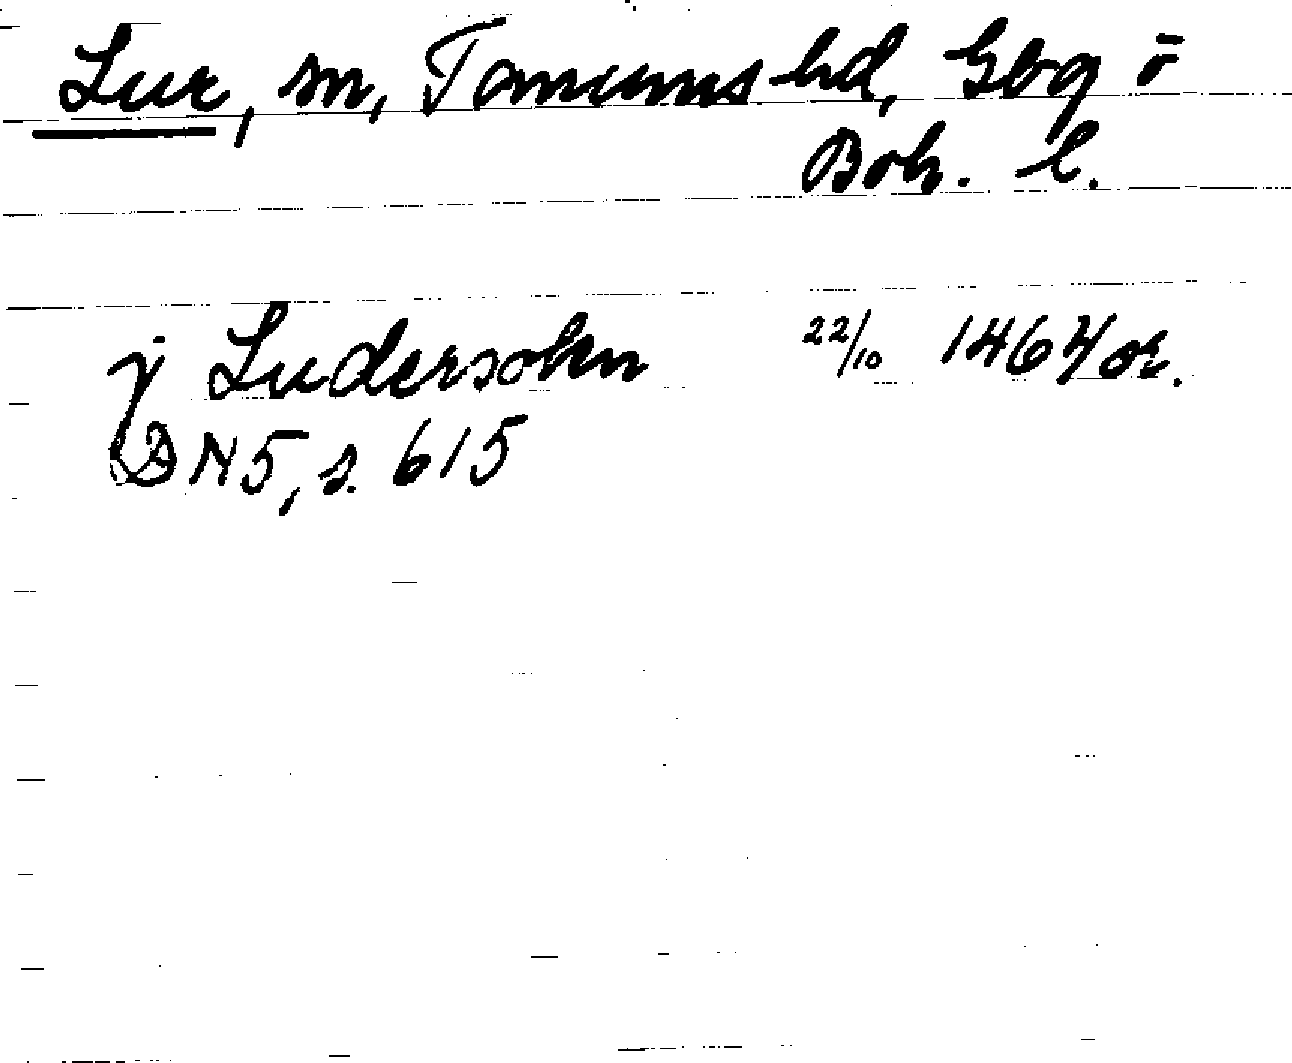 Lur, sn, Tanums hd, Gbg o
Boh. l.
j Ludersokn 22/10 1464 or.
DN 5, s. 615